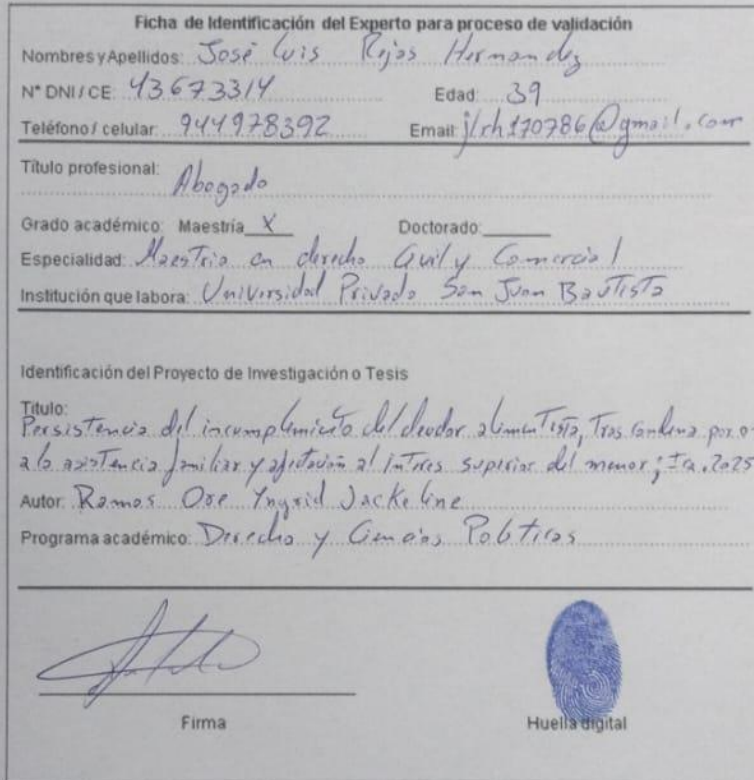 Ficha de Identificación del Experto para proceso de validación
Nombres y Apellidos: José Luis Rojas Hernandez
N° DNI / CE: 43673314 Edad: 39
Teléfono / celular: 944978392 Email: jlrh170786@gmail.com
Título profesional: Abogado
Grado académico: Maestría X Doctorado:
Especialidad: Maestria en derecho Civil y Comercial
Institución que labora: Universidad Privada San Juan Bautista
Identificación del Proyecto de Investigación o Tesis
Titulo:
Persistencia del incumplimiento del deudor alimentista, Tras Condena por o
a la asistencia familiar y afectación al interes superior del menor; Ica, 2025
Autor: Ramos Ore Yngrid Jackeline
Programa académico: Derecho y Ciencias Politicas
Firma Huella digital